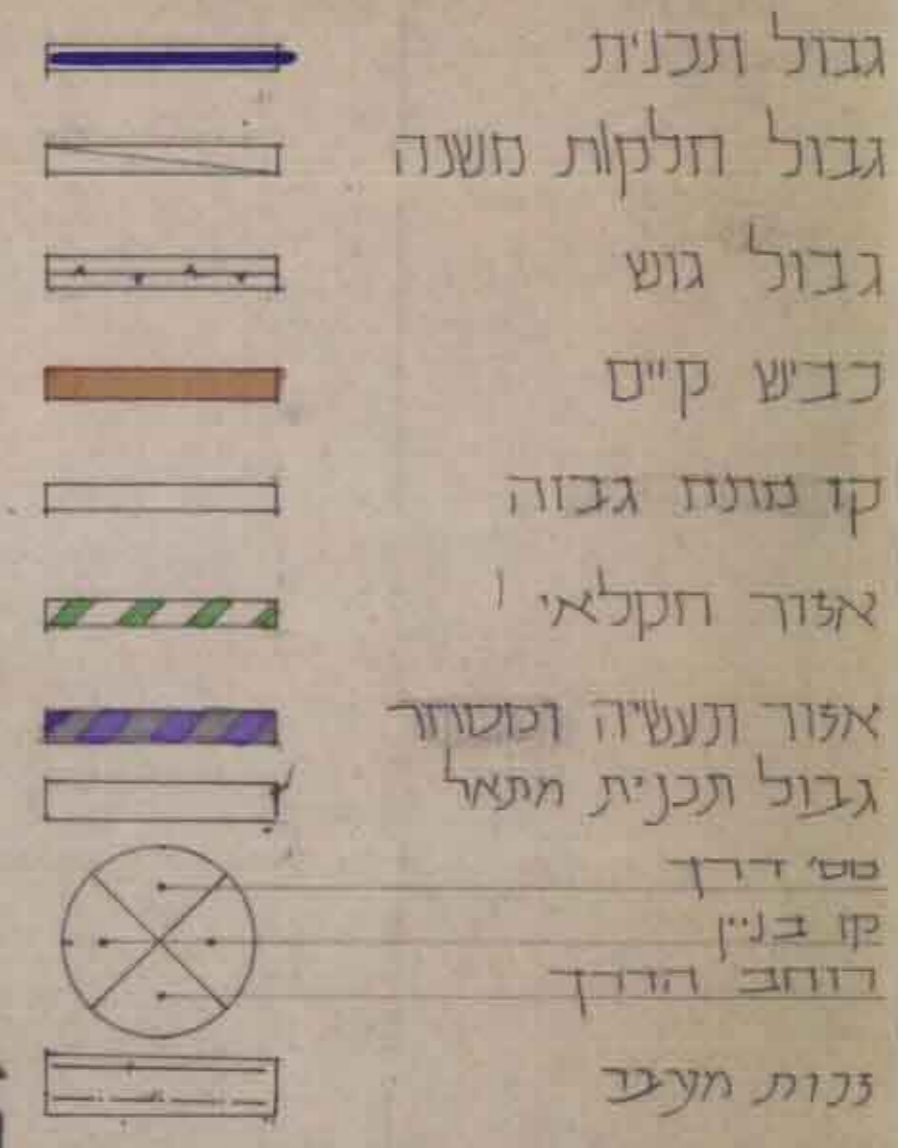 גבול תכנית
גבול חלקות משנה
גבול גוש
כביש קיים
קו מתח גבוה
אזור חקלאי
אזור תעשיה ומסחר
גבול תכנית מתאר
מס׳ דרך
קו בניין
רוחב הדרך
זכות מעבר